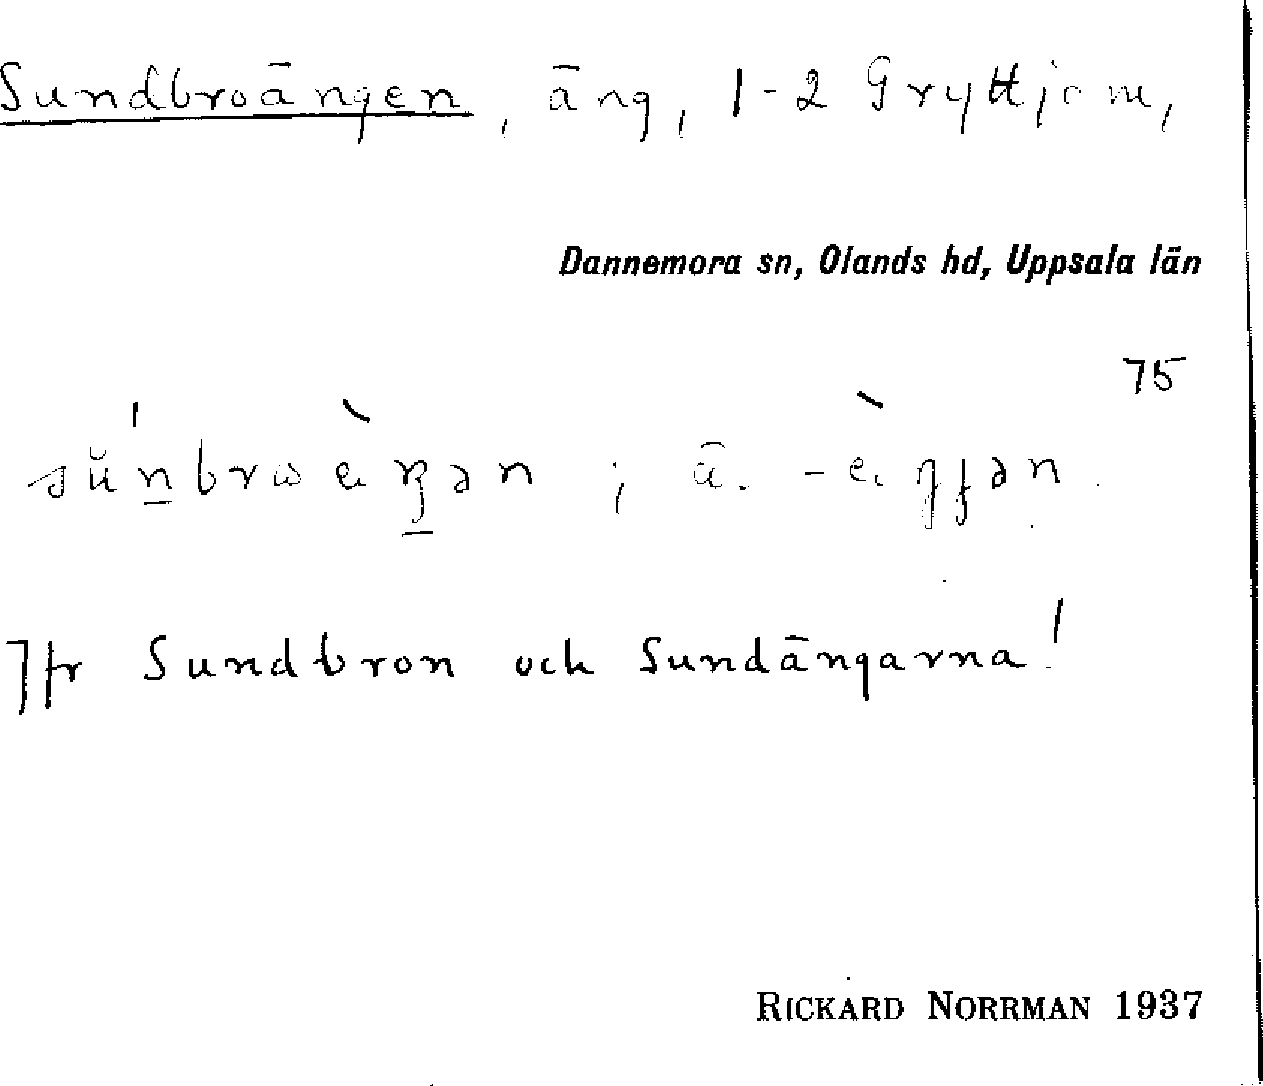 Sundbroängen, äng, 1-2 Gryttjom,
Dannemora sn, Olands hd, Uppsala län
75
Jfr Sundbron och Sundängarna!
RICKARD NORRMAN 1937